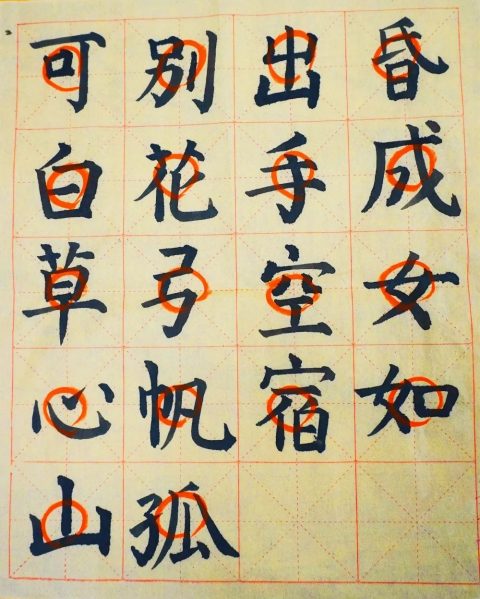 可别出昏
白花手成
草弓空女
心帆宿如
山孤